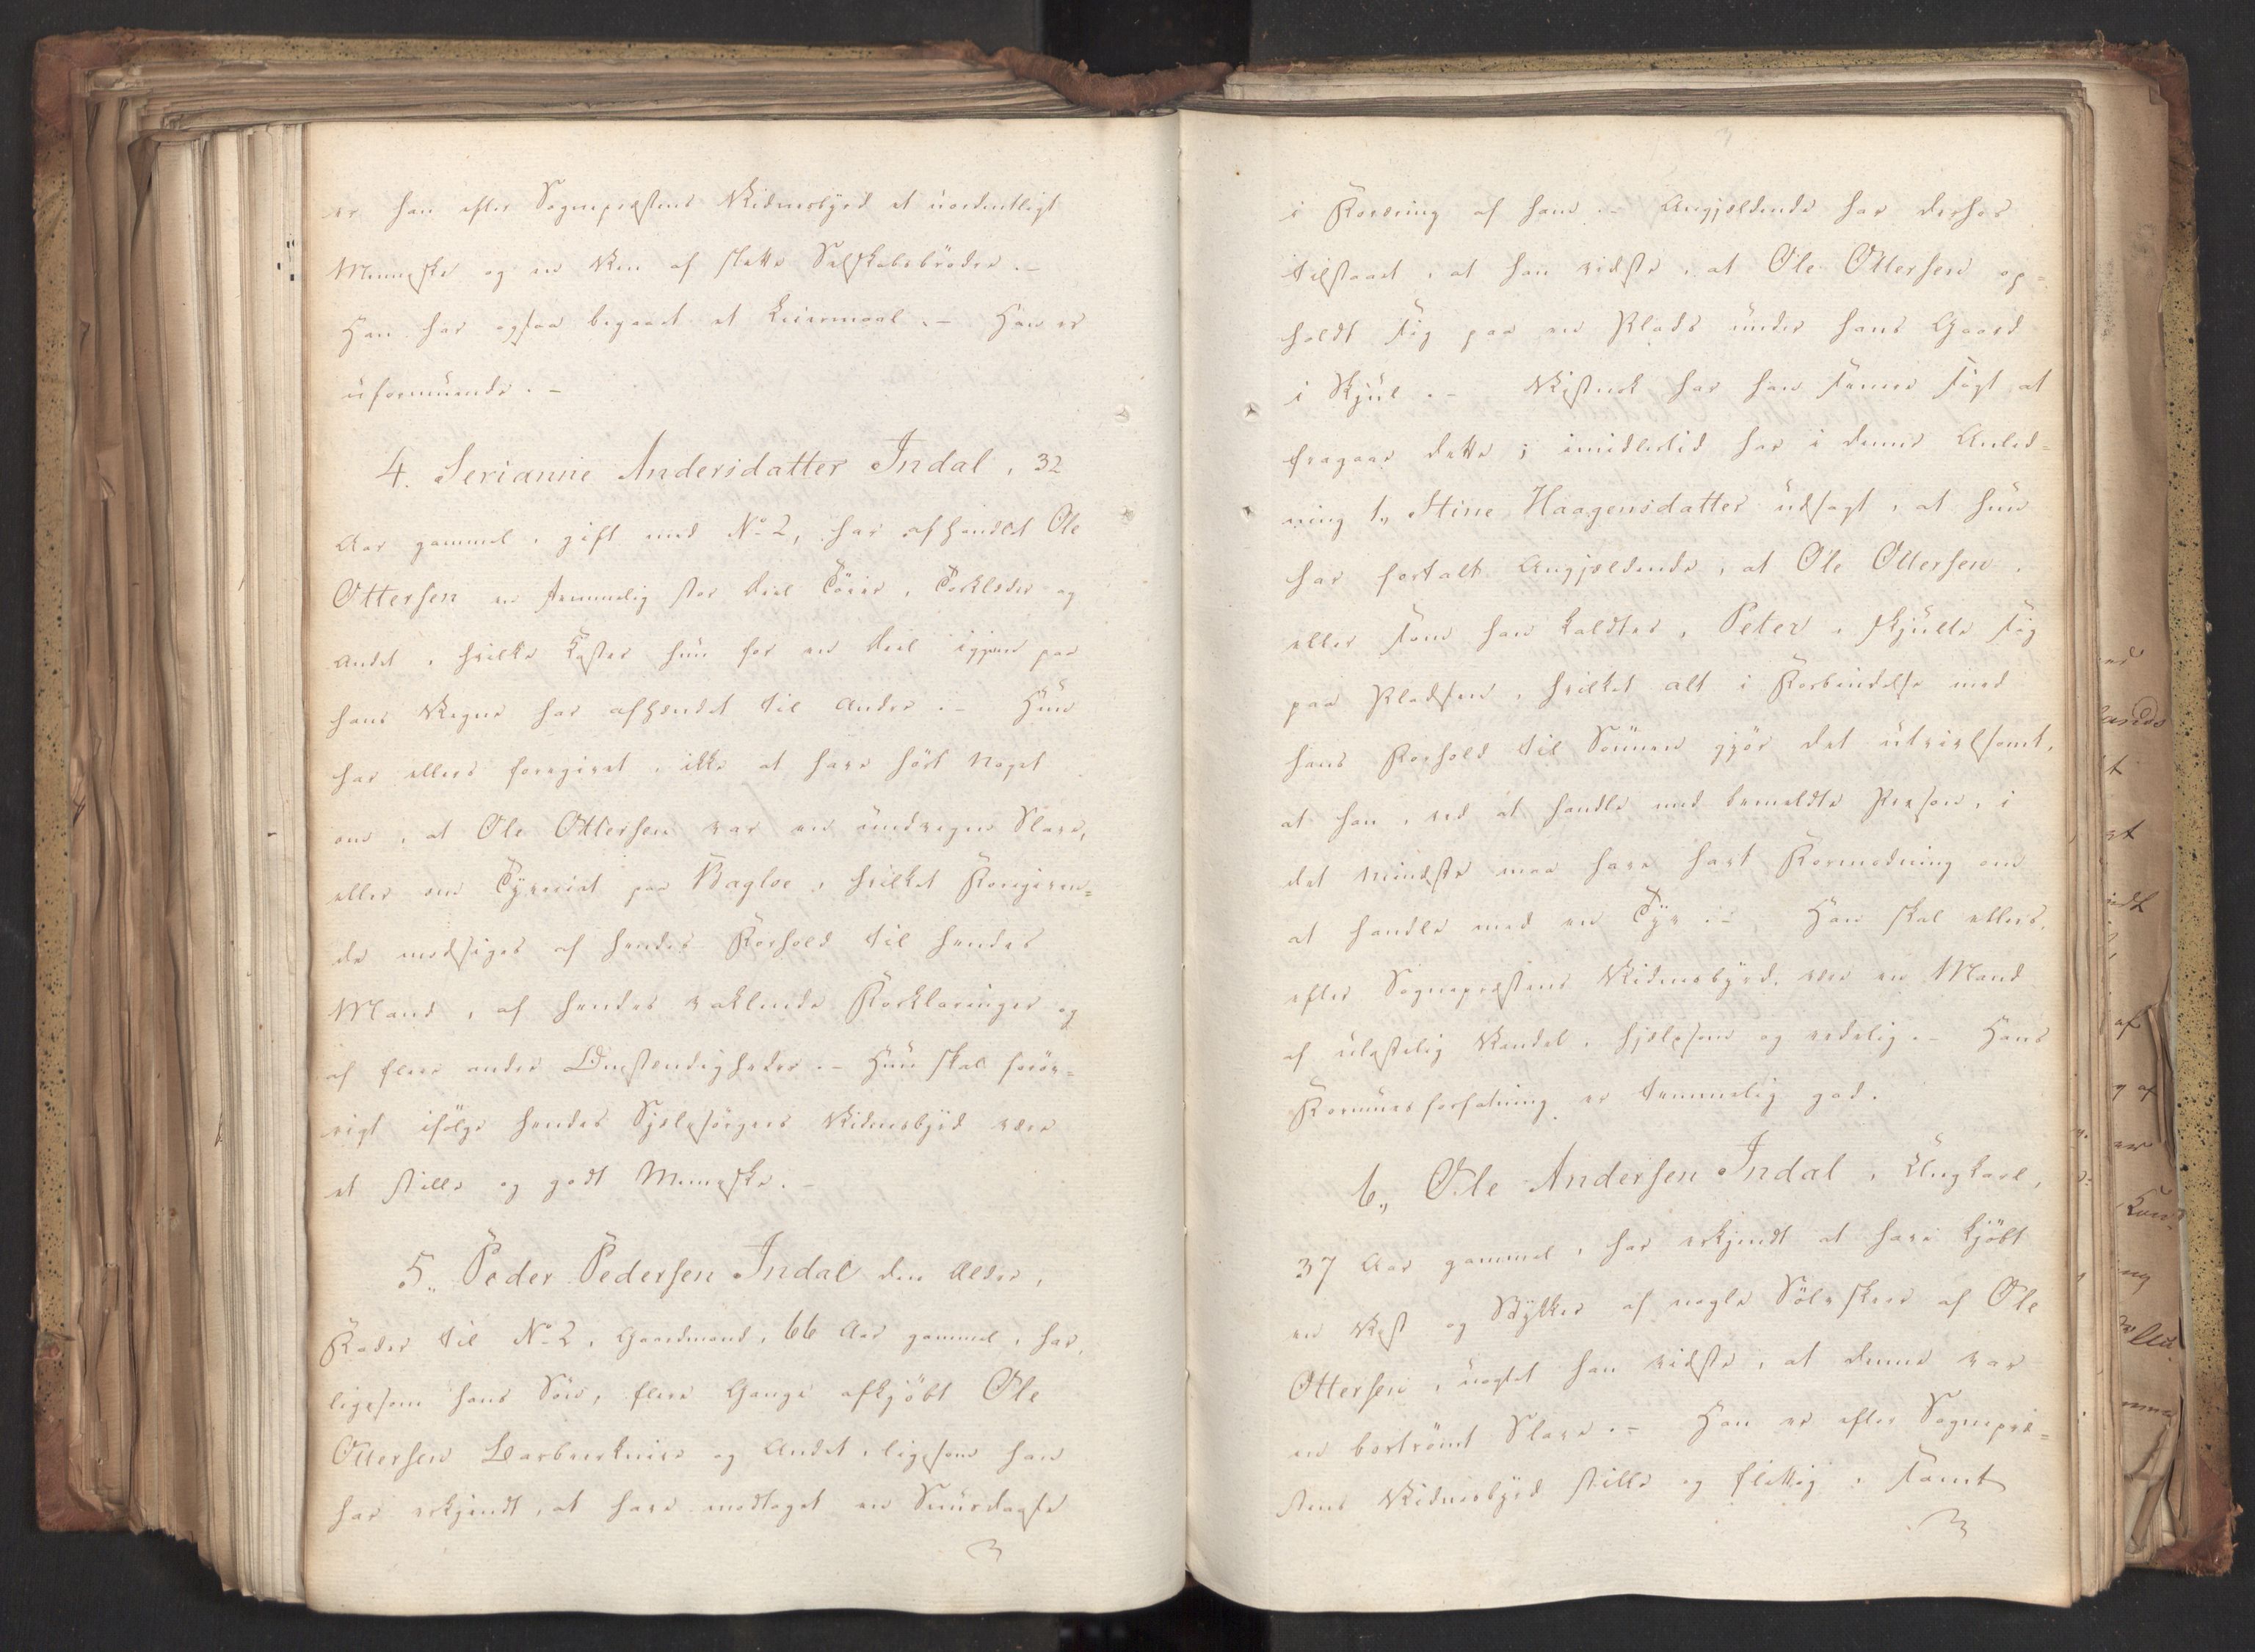 er han efter Sognepræstens Vidnesbyrd et uordentligt
Menneske og en Ven af slette Selskabsbrödre. –
Han har ogsaa begaaet et Leiermaal. – Han er
uformuende. –
4. Serianne Andersdatter Indal, 32
Aar gammel, gift med No 2, har afhandlet Ole
Ottersen en temmelig stor Deel Töier, Törklæder og
Andet, hvilke Koster hun for en Deel igjen paa
hans Vegne har afhændet til Andre. – Hun
har ellers foregivet, ikke at have hört Noget
om, at Ole Ottersen var en undvegne Slave,
eller om Tyveriet paa Bagloe, hvilket Foregiven=
de modsiges af hendes Forhold til hendes
Mand, af hendes vaklende Forklaringer og
af flere andre Omstændigheder. – Hun skal foröv=
rigt ifölge hendes Sjelesörgers Vidnesbyrd være
et stille og godt Menneske. –
5. Peder Pedersen Indal den Ældre,
Fader til No 2, Gaardmand, 66 Aar gammel, har,
ligesom hans Sön, flere Gange afkjöbt Ole
Ottersen Barbeerknive og Andet, ligesom han
har erkjendt, at have modtaget en Snuusdaase
i Foræring af ham. – Angjældende har derhos
tilstaaet, at han vidste, at Ole Ottersen op=
holdt sig paa en Plads under hans Gaard
i Skjul. – Vistnok har han senere sögt at
fragaae dette; imidlertid har i denne Anled=
ning 1., Stine Haagensdatter udsagt, at hun
har fortalt Angjældende, at Ole Ottersen,
eller som han kaldtes, Peter, skjulte sig
paa Pladsen, hvilket alt i Forbindelse med
hans Forhold til Sönnen gjör det utvivlsomt,
at han, ved at handle med bemeldte Person, i
det Mindste maa have havt Formodning om
at handle med en Tyv. – Han skal ellers,
efter Sognepræstens Vidnesbyrd, være en Mand
af ulastelig Vandel, hjelpsom og redelig. – Hans
Formuesforfatning er temmelig god.
6., Ole Andersen Indal, Ungkarl,
37 Aar gammel, har erkjendt at have kjöbt
en Vest og Stykker af nogle Sölvskeer af Ole
Ottersen, uagtet han vidste, at denne var
en bortrömt Slave. – Han er efter Sognepræ=
stens Vidnesbyrd stille og flittig, samt